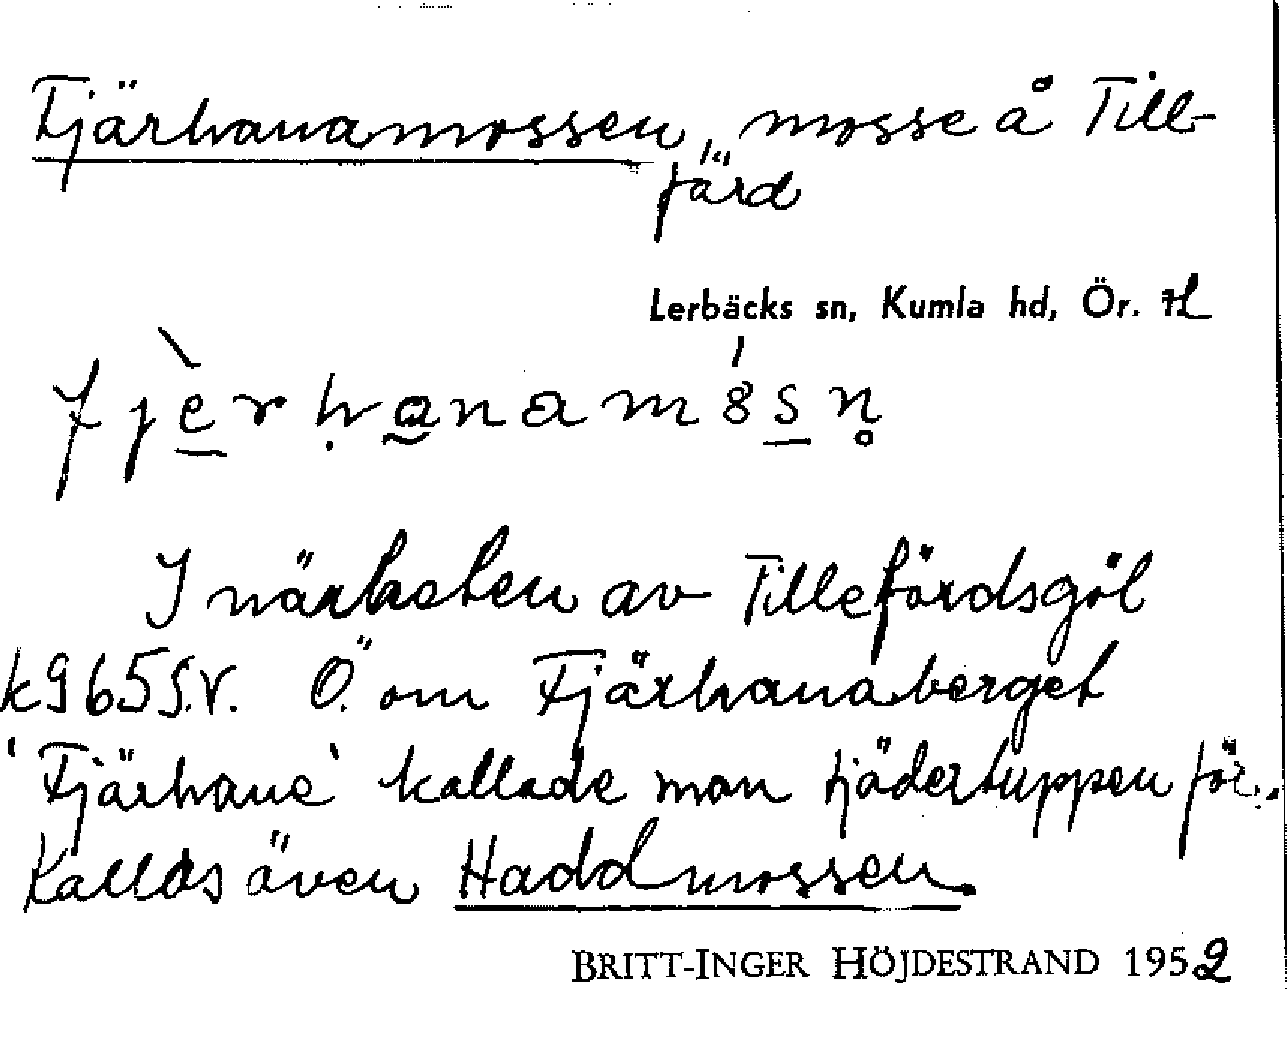 Fjärhanamossen, mosse å Till-
färd
Lerbäcks sn, Kumla hd, Ör. l
fjèrhanamósn
I närheten av Tillefördsgöl
k965S.V. Ö. om Fjärhanaberget
'Fjärhane' kallade man tjädertuppen för.
Kallas även Haddmossen.
BRITT-INGER HÖJDESTRAND 1952